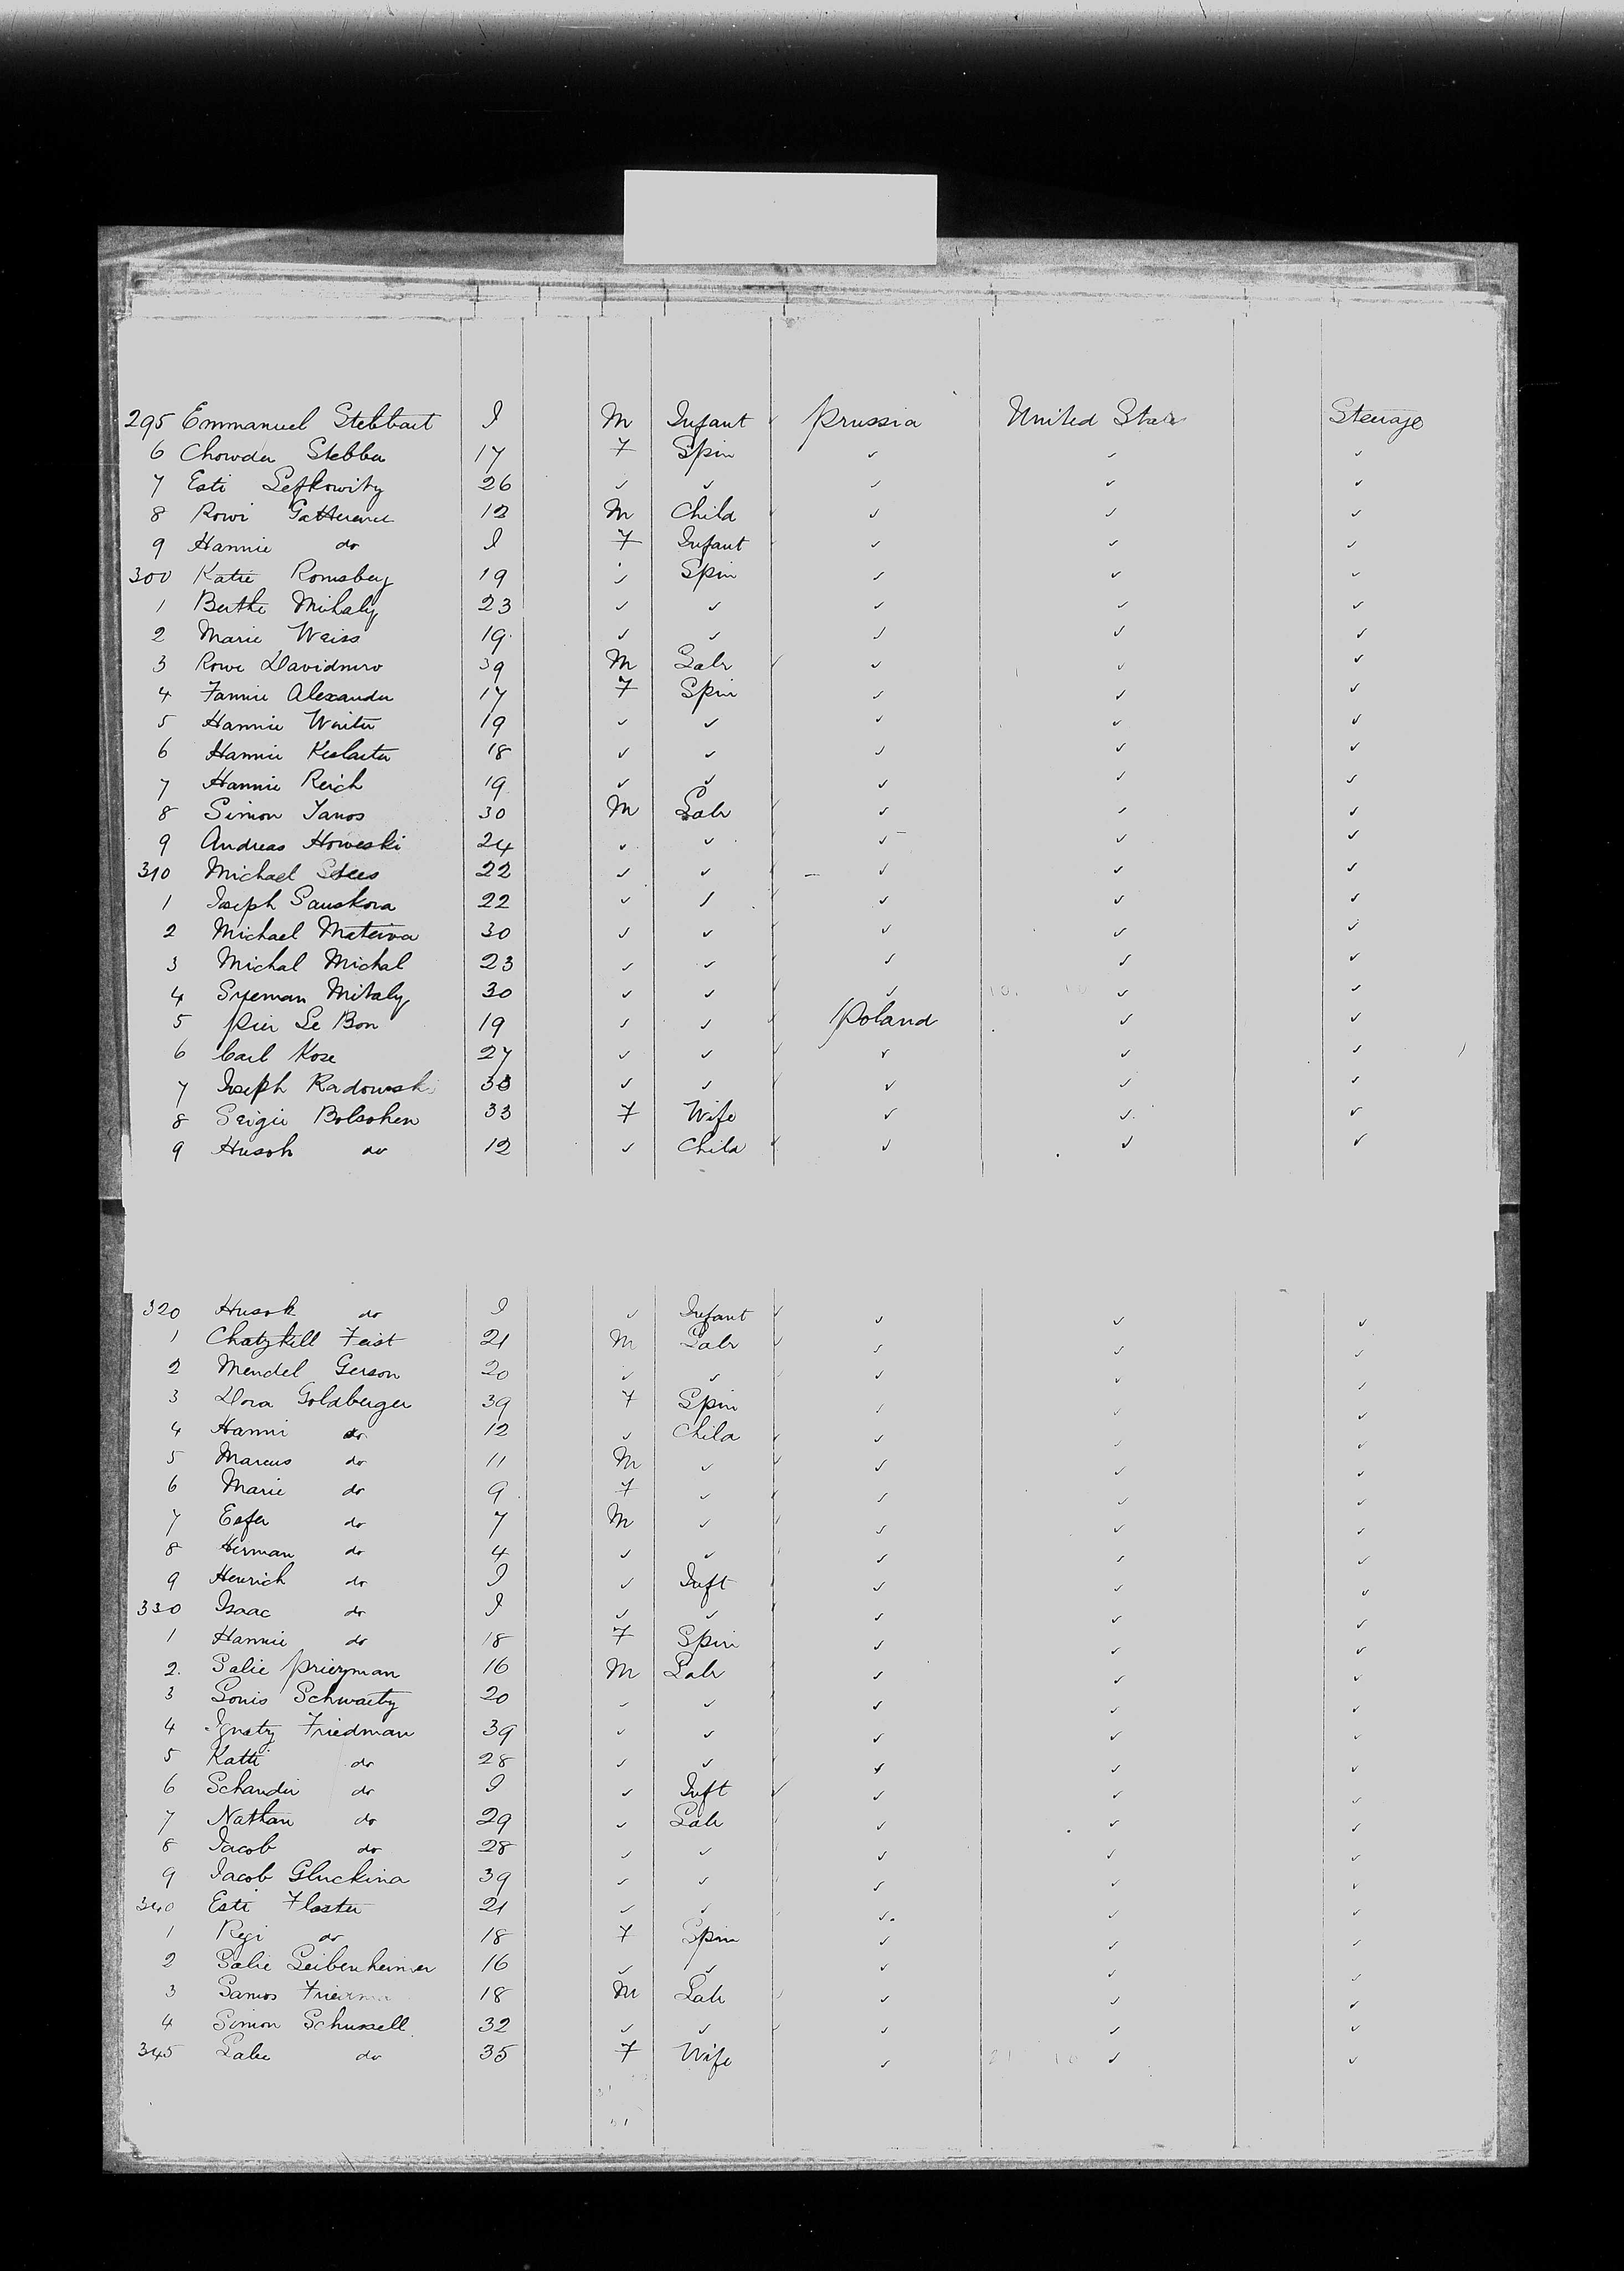 295 Emmanuel Stebbart I M Infant Prussia United States Steerage
6 Chowder Stebber 17 F Spin ✓ ✓ ✓
7 Esti Lefkowitz 26 ✓ ✓ ✓ ✓ ✓
8 Rowi 12 M Child ✓ ✓ ✓
9 Hannie do I F Infant ✓ ✓ ✓
300 Katie Romsberg 19 ✓ Spin ✓ ✓ ✓
1 Berthe Mihaly 23 ✓ ✓ ✓ ✓ ✓
2 Marie Weiss 19 ✓ ✓ ✓ ✓ ✓
3 Rowe 39 M Labr ✓ ✓ ✓
4 Fannie Alexander 17 F Spin ✓ ✓ ✓
5 Hannie Winter 19 ✓ ✓ ✓ ✓ ✓
6 Hannie 18 ✓ ✓ ✓ ✓ ✓
7 Hannie Reich 19 ✓ ✓ ✓ ✓ ✓
8 Simon Janos 30 M Labr ✓ ✓ ✓
9 Andreas Howeski 24 ✓ ✓ ✓ ✓ ✓
310 Michael 22 ✓ ✓ ✓ ✓ ✓
1 Joseph Sauskova 22 ✓ ✓ ✓ ✓ ✓
2 Michael Mateiva 30 ✓ ✓ ✓ ✓ ✓
3 Michal Michal 23 ✓ ✓ ✓ ✓ ✓
4 Mihaly 30 ✓ ✓ ✓ ✓ ✓
5 Pier Le Bon 19 ✓ ✓ Poland ✓ ✓
6 Carl Kose 27 ✓ ✓ ✓ ✓ ✓
7 Joseph Radowski 33 ✓ ✓ ✓ ✓ ✓
8 Seigie Bolsohen 33 F Wife ✓ ✓ ✓
9 Husoh do 12 ✓ Child ✓ ✓ ✓
320 Husok do I ✓ Infant ✓ ✓ ✓
1 Chatzkell Feist 21 M Labr ✓ ✓ ✓
2 Mendel Gerson 20 ✓ ✓ ✓ ✓ ✓
3 Dora Goldberger 39 F Spin ✓ ✓ ✓
4 Hanni do 12 ✓ Child ✓ ✓ ✓
5 Marcus do 11 M ✓ ✓ ✓ ✓
6 Marie do 9 F ✓ ✓ ✓ ✓
7 do 7 M ✓ ✓ ✓ ✓
8 Herman do 4 ✓ ✓ ✓ ✓ ✓
9 Henrich do I ✓ Inft ✓ ✓ ✓
330 Isaac do I ✓ ✓ ✓ ✓ ✓
1 Hannie do 18 F Spin ✓ ✓ ✓
2. Salie Priezman 16 M Labr ✓ ✓ ✓
3 Louis Schwartz 20 ✓ ✓ ✓ ✓ ✓
4 Ignatz Friedman 39 ✓ ✓ ✓ ✓ ✓
5 Katti do 28 ✓ ✓ ✓ ✓ ✓
6 Schandir do I ✓ Inft ✓ ✓ ✓
7 Nathan do 29 ✓ Labr ✓ ✓ ✓
8 Jacob do 28 ✓ ✓ ✓ ✓ ✓
9 Jacob Gluckina 39 ✓ ✓ ✓ ✓ ✓
340 Esti Flaster 21 ✓ ✓ ✓ ✓ ✓
1 Regi do 18 F Spin ✓ ✓ ✓
2 Salie Leibenheimer 16 ✓ ✓ ✓ ✓ ✓
3 Samos 18 M Labr ✓ ✓ ✓
4 Simon Schussell 32 ✓ ✓ ✓ ✓ ✓
345 do 35 F Wife ✓ ✓ ✓